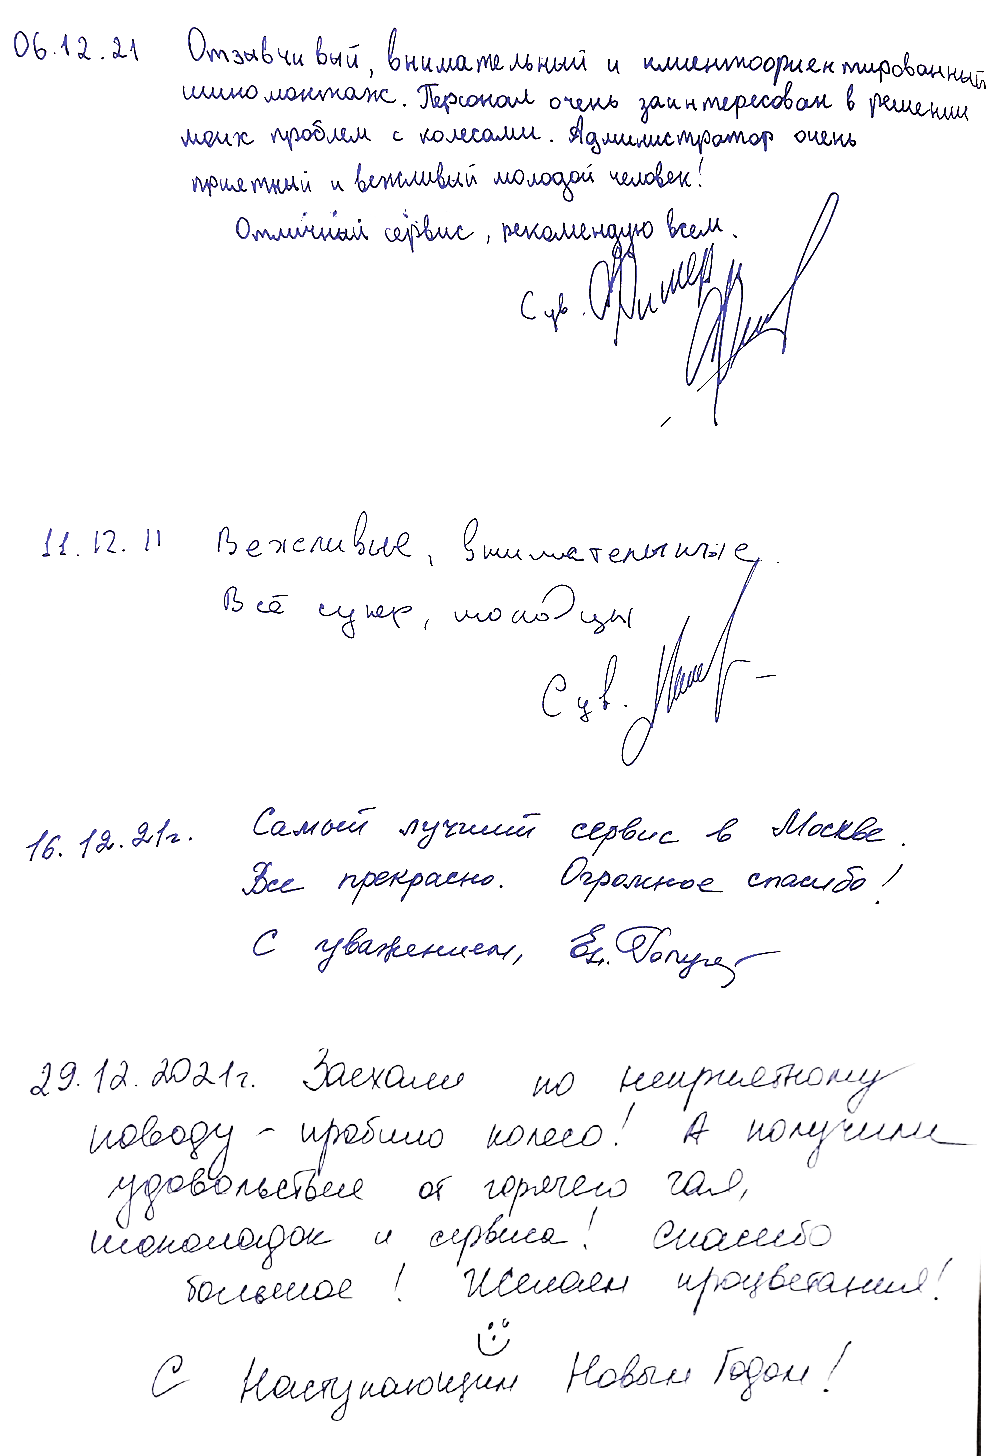 06.12.21 Отзывчивый, внимательный и клиентоориентированный
шиномонтаж. Персонал очень заинтересован в решении
моих проблем с колесами. Администратор очень
приятный и вежливый молодой человек!
Отличный сервис, рекомендую всем.
С ув.
11.12.11 Вежливые, внимательные.
Всё супер, молодцы
С ув.
16.12.21г. Самый лучший сервис в Москве.
Все прекрасно. Огромное спасибо!
С уважением,
29.12.2021г. Заехали по неприятному
поводу - пробило колесо! А получили
удовольствие от горячего чая,
шоколадок и сервиса! Спасибо
большое! Желаем процветания!
С Наступающим Новым Годом!